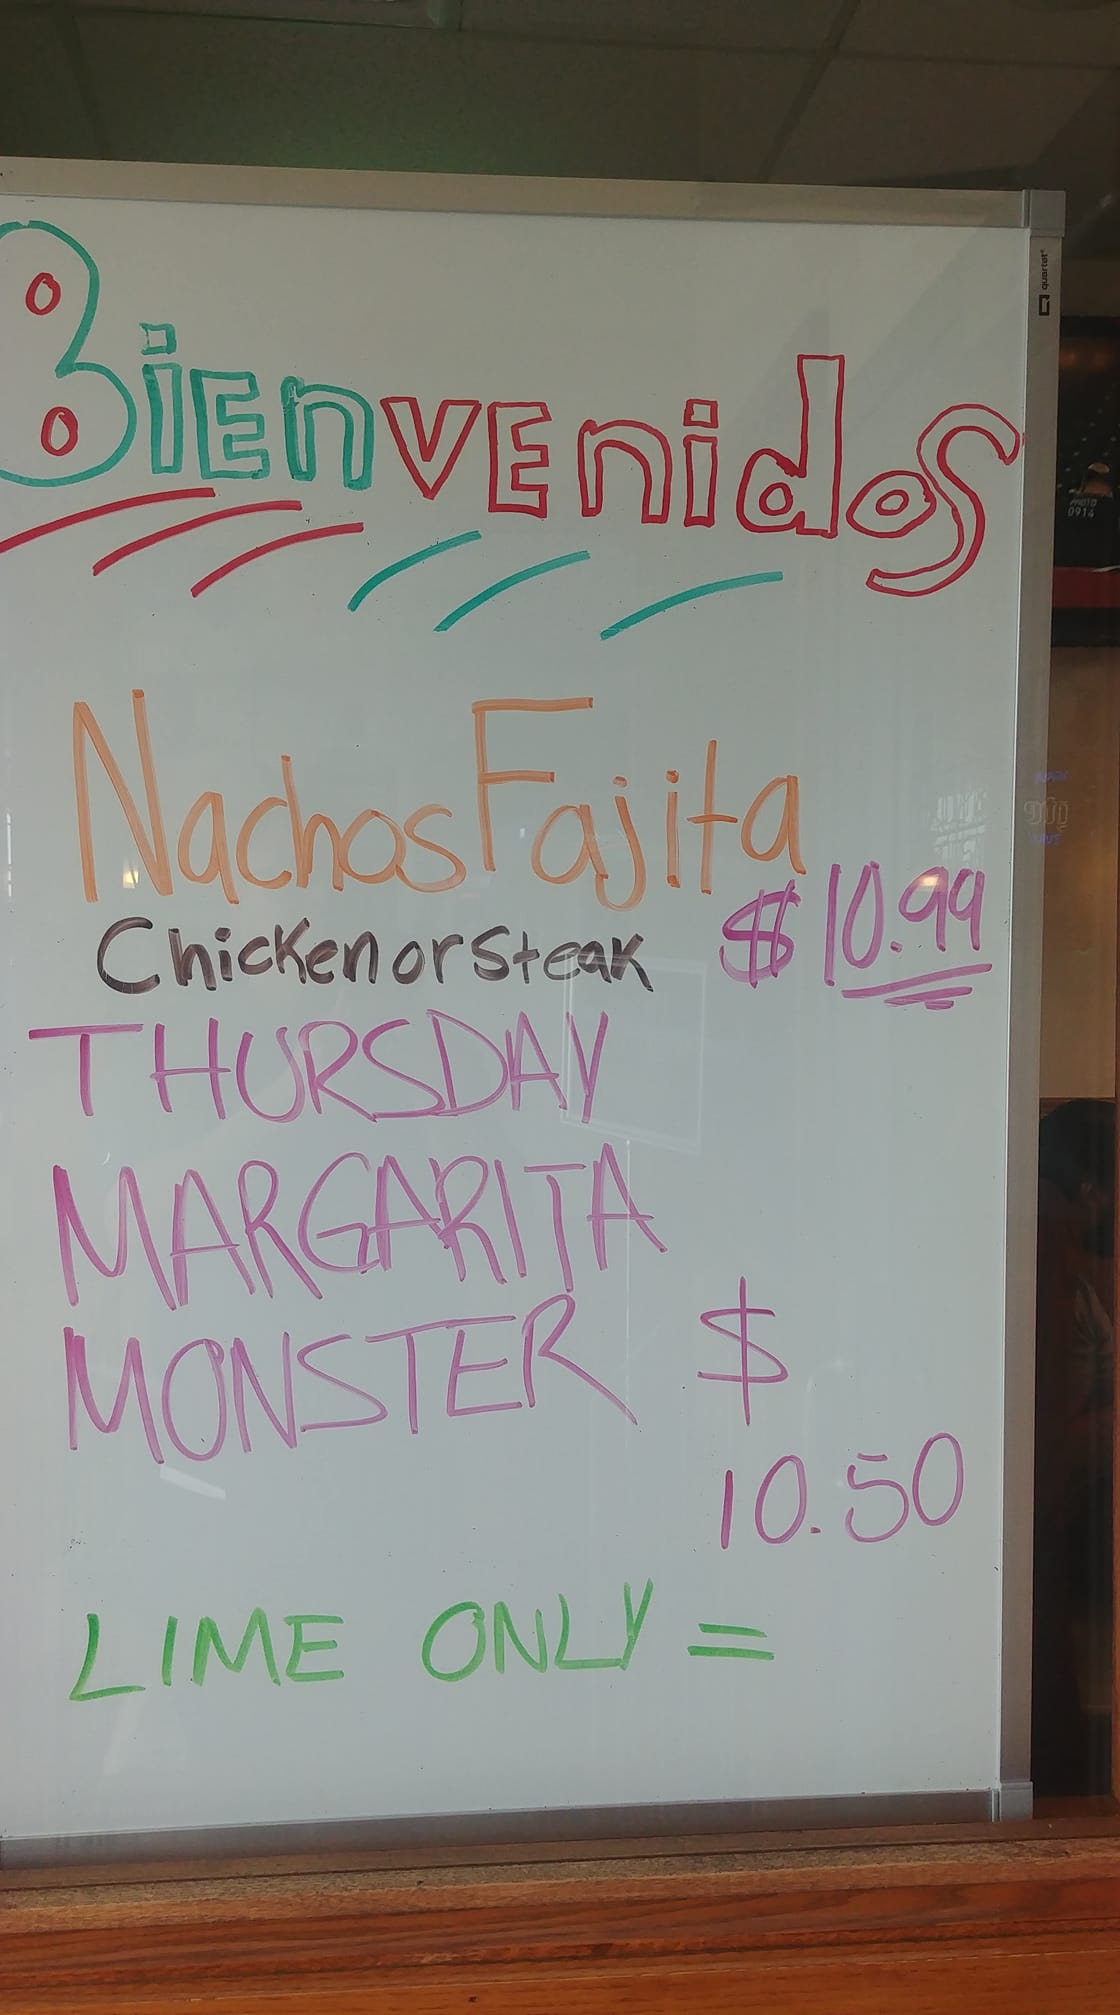 Bienvenidos
Nachos Fajita
Chicken or Steak $10.99
THURSDAY
MARGARITA
MONSTER $
10.50
LIME ONLY =
quartet
PHOTO
0914